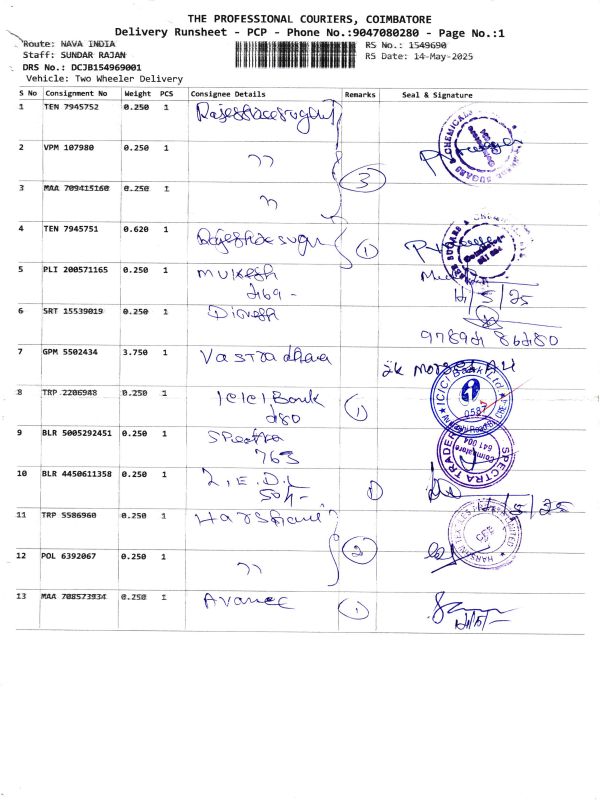 THE PROFESSIONAL COURIERS, COIMBATORE
Delivery Runsheet - PCP - Phone No.:9047080280 - Page No.:1
Route: NAVA INDIA
RS No.: 1549690
Staff: SUNDAR RAJAN
RS Date: 14-May-2025
DRS No.: DCJB154969001
Vehicle: Two Wheeler Delivery
S No Consignment No Weight PCS Consignee Details Remarks Seal & Signature
1 TEN 7945752 0.250 1
2 VPM 107980 0.250 1 ,,
3 MAA 709415160 0.250 1 ,, 3
4 TEN 7945751 0.620 1 1
5 PLI 200571165 0.250 1 Mukesh
269 -
6 SRT 15539019 0.250 1 Dinesh
7 GPM 5502434 3.750 1 Vastradhaa
8 TRP 2206948 0.250 1 ICICI Bank 1
280
ICICI Bank Ltd
9 BLR 5005292451 0.250 1 Spectra
763
SPECTRA TRADER
Coimbatore
641 004
10 BLR 4450611358 0.250 1 1
504 -
11 TRP 5586960 0.250 1
12 POL 6392067 0.250 1 ,, 2
13 MAA 708573934 0.250 1 Avanee 1